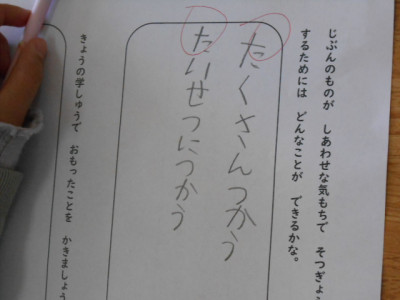 じぶんのものが しあわせな気もちで そつぎょ
するためには どんなことが できるかな。
たくさんつかう
たいせつにつかう
きょうの学しゅうで おもったことを かきましょう